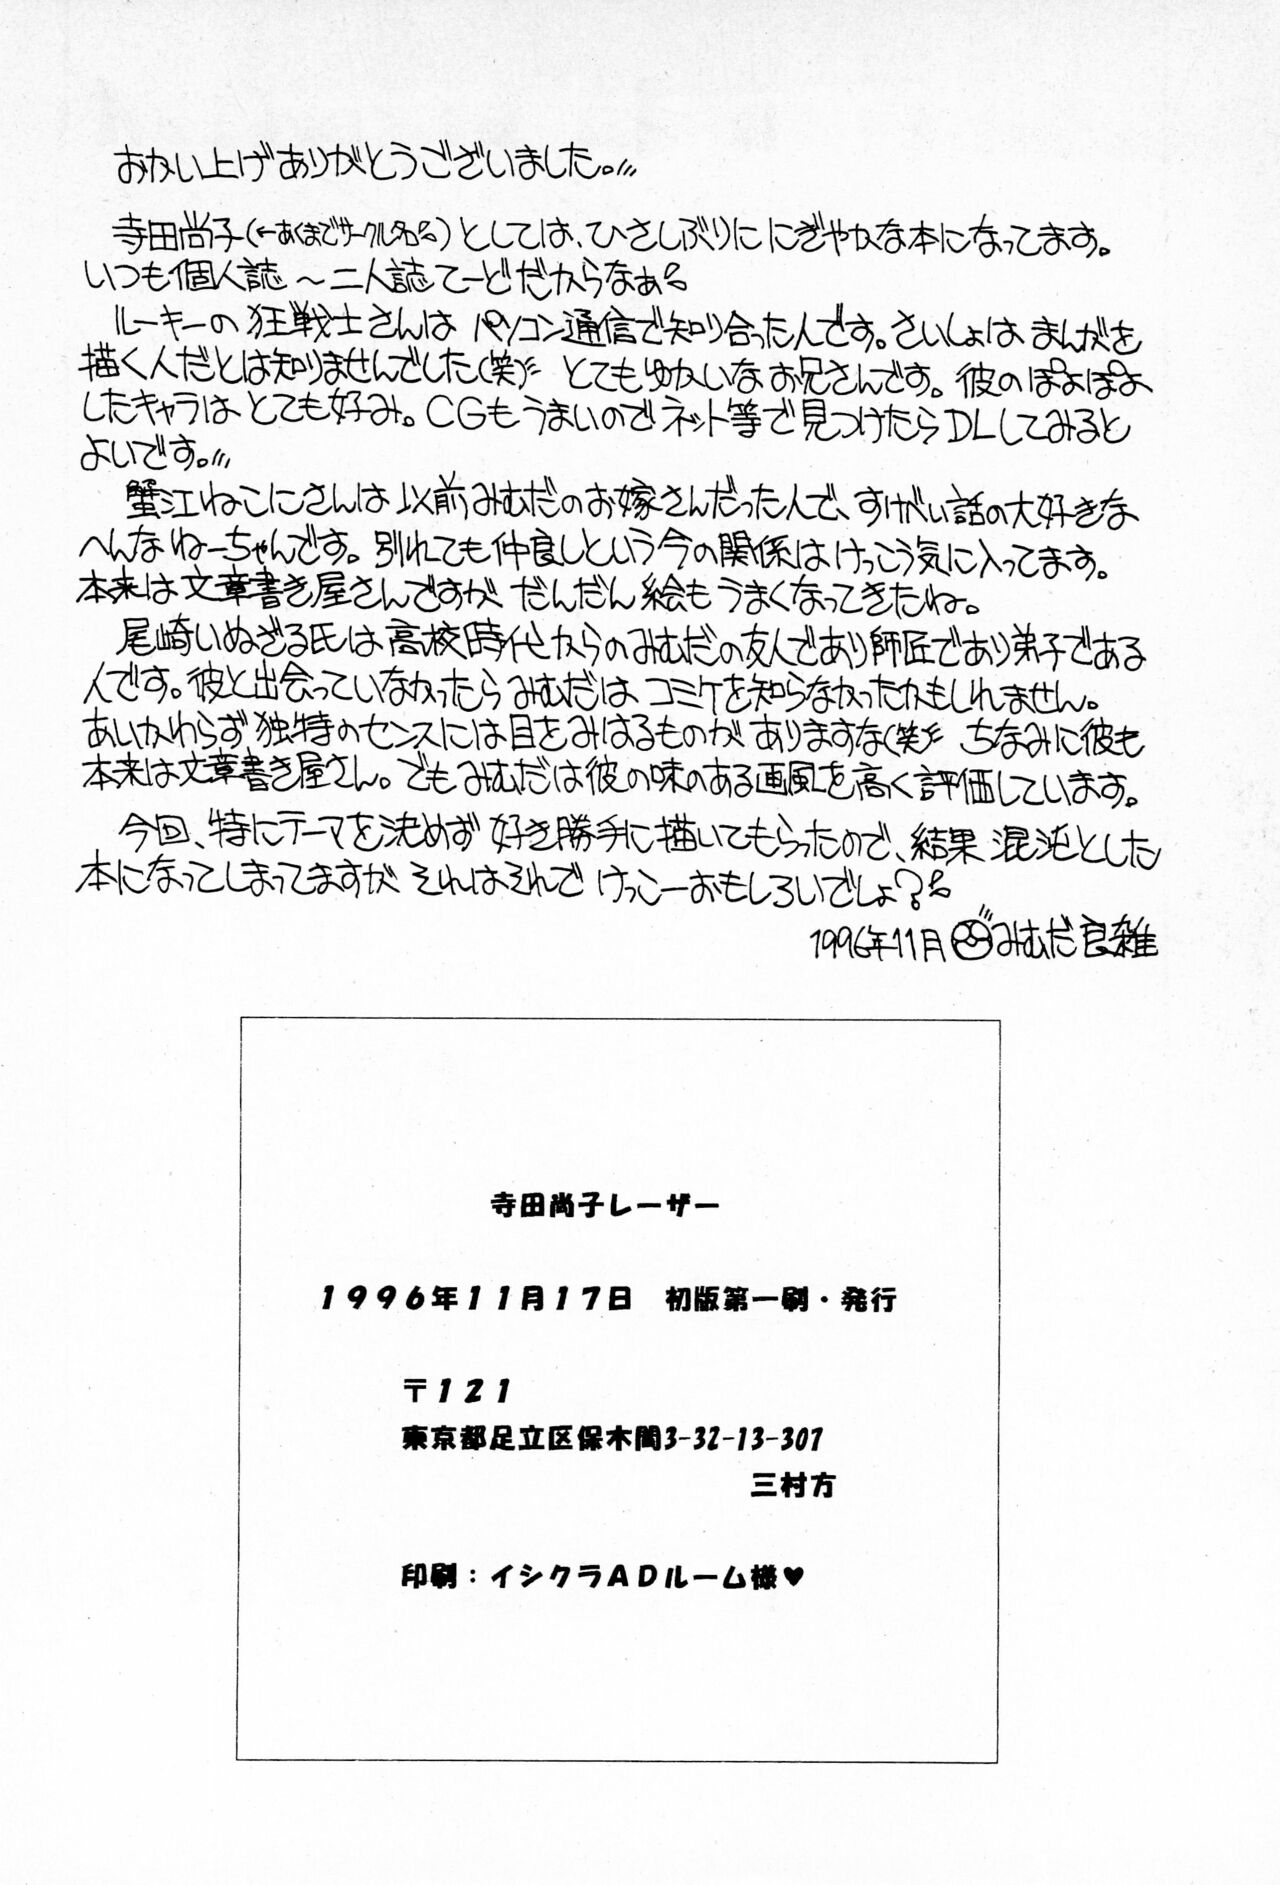 おかい上げありがとうございました。
寺田尚子(←あくまでサークル名)としては、ひさしぶりににぎやかな本になってます。
いつも個人誌〜二人誌てーどだからなぁ。
ルーキーの狂戦士さんはパソコン通信で知り合った人です。さいしょはまんがを
描く人だとは知りませんでした(笑) とてもゆかいなお兄さんです。彼のぽよぽよ
したキャラはとても好み。CGもうまいのでネット等で見つけたらDLしてみると
よいです。
蟹江ねこにさんは以前みむだのお嫁さんだった人で、すけべい話の大好きな
へんなねーちゃんです。別れても仲良しという今の関係はけっこう気に入ってます。
本来は文章書き屋さんですがだんだん絵もうまくなってきたね。
尾崎いぬざる氏は高校時代からのみむだの友人であり師匠であり弟子である
人です。彼と出会っていなかったらみむだはコミケを知らなかったかもしれません。
あいかわらず独特のセンスには目をみはるものがありますな(笑) ちなみに彼も
本来は文章書き屋さん。でもみむだは彼の味のある画風を高く評価しています。
今回、特にテーマを決めず好き勝手に描いてもらったので、結果混沌とした
本になってしまってますがそれはそれでけっこーおもしろいでしょ?
1996年11月 みむだ良雑
寺田尚子レーザー
1996年11月17日 初版第一刷・発行
〒121
東京都足立区保木間3-32-13-307
三村方
印刷：イシクラADルーム様♥